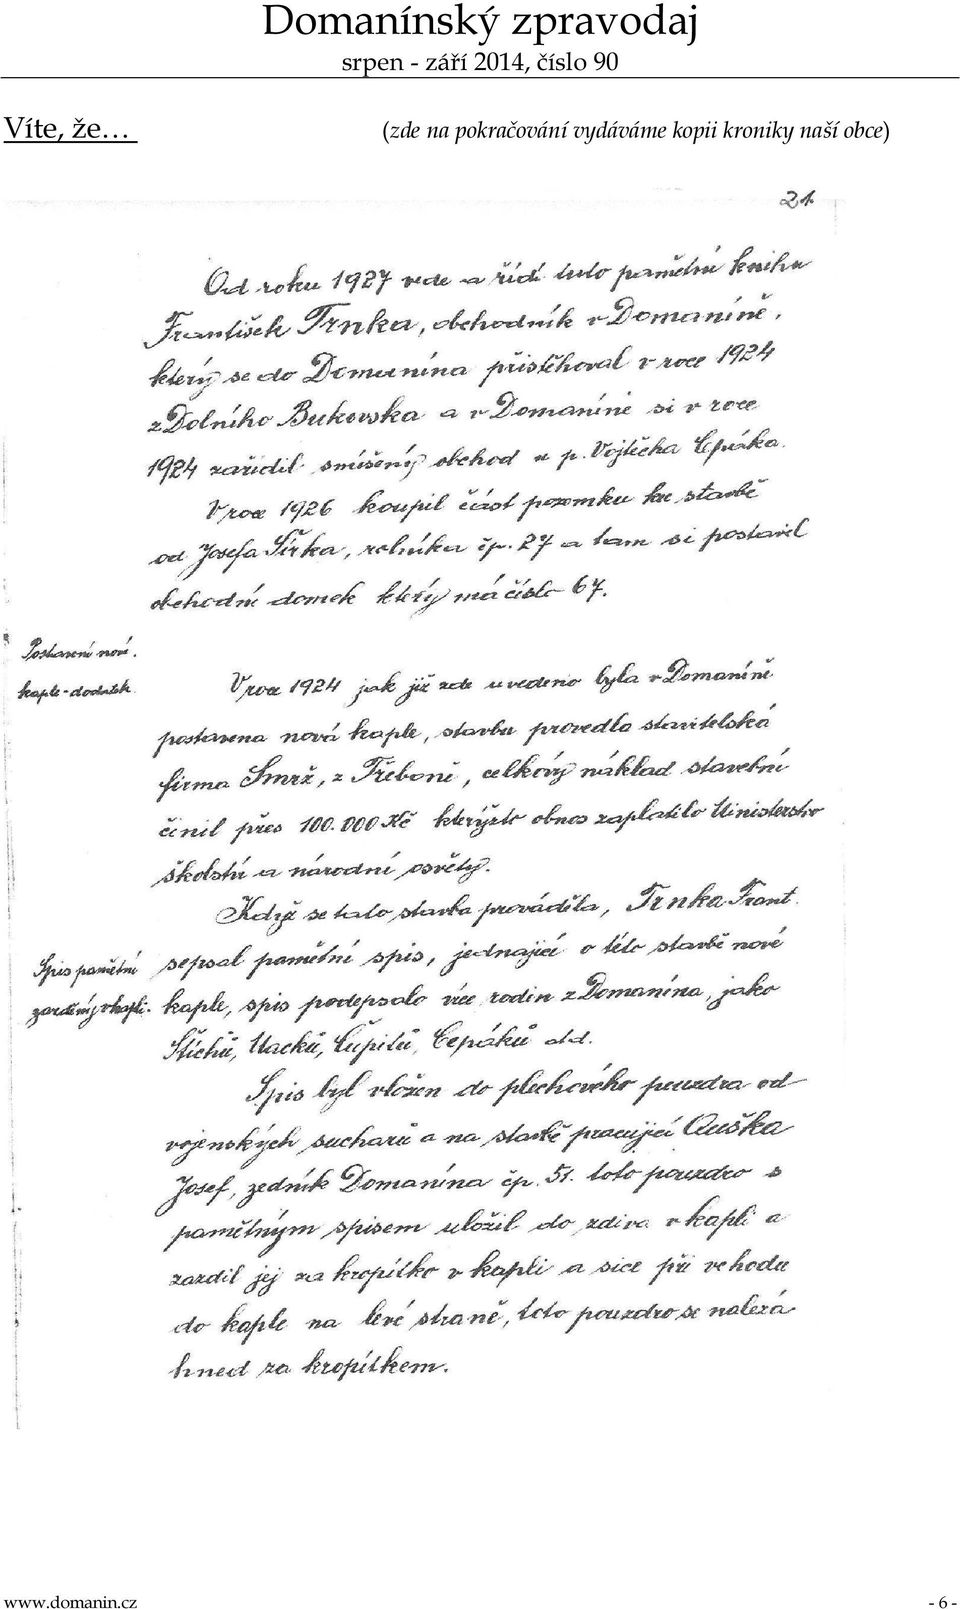 Domanínský zpravodaj
srpen - září 2014, číslo 90
Víte, že… (zde na pokračování vydáváme kopii kroniky naší obce)
21
Od roku 1927 vede a řídí tuto pamětní knihu
František Trnka, obchodník v Domaníně,
který se do Domanína přistěhoval v roce 1924
z Dolního Bukovska a v Domaníně si v roce
1924 zařídil smíšený obchod u p. Vojtěcha Cepáka.
V roce 1926 koupil část pozemku ke stavbě
od Josefa Šírka, rolníka čp. 27 a tam si postavil
obchodní domek který má číslo 67.
Postavení nové
kaple - dodatek
V roce 1924 jak již zde uvedeno byla v Domaníně
postavena nová kaple, stavbu provedla stavitelská
firma Smrž, z Třeboně, celkový náklad stavební
činil přes 100.000 Kč kterýžto obnos zaplatilo Ministerstvo
školství a národní osvěty.
Když se tato stavba prováděla, Trnka Frant.
Spis pamětní
zazděný v kapli.
sepsal pamětní spis, jednající o této stavbě nové
kaple, spis podepsalo více rodin z Domanína, jako
Štíchů, Macků, Cepáků atd.
Spis byl vložen do plechového pouzdra od
vojenských sucharů a na stavbě pracující Auška
Josef, zedník Domanína čp. 51. toto pouzdro s
pamětným spisem uložil do zdiva v kapli a
zazdil jej za kropítko v kapli a sice při vchodu
do kaple na levé straně, toto pouzdro se nalezá
hned za kropítkem.
www.domanin.cz - 6 -